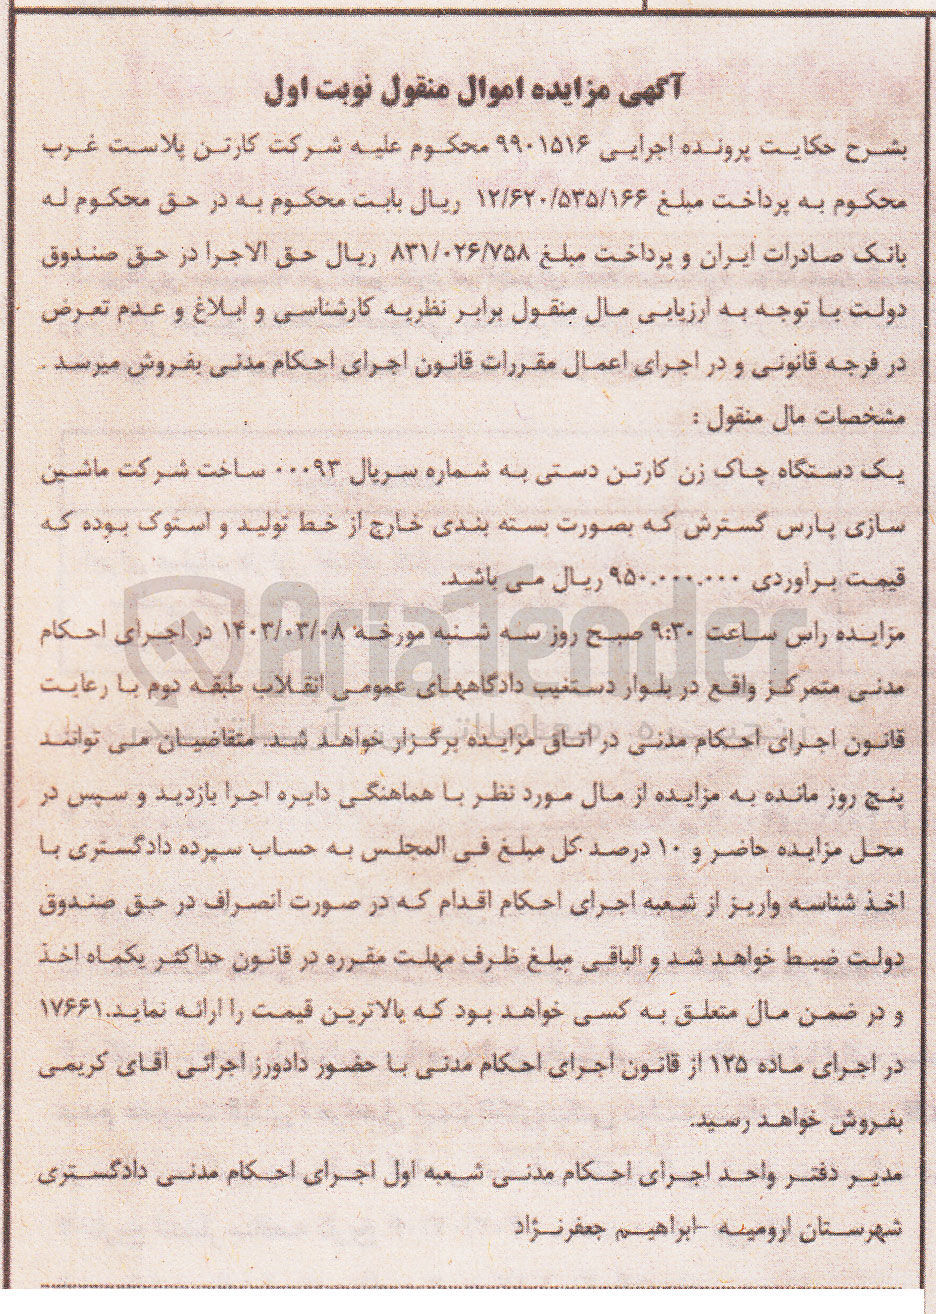 آگهی مزایده اموال منقول نوبت اول
بشرح حکایت پرونده اجرایی ۹۹۰۱۵۱۶ محکوم علیه شرکت کارتن پلاست غرب
محکوم به پرداخت مبلغ ۱۲/۶۲۰/۵۳۵/۱۶۶ ریال بابت محکوم به در حق محکوم له
بانک صادرات ایران و پرداخت مبلغ ۸۳۱/۰۲۶/۷۵۸ ریال حق الاجرا در حق صندوق
دولت با توجه به ارزیابی مال منقول برابر نظریه کارشناسی و ابلاغ و عدم تعرض
در فرجه قانونی و در اجرای اعمال مقررات قانون اجرای احکام مدنی بفروش میرسد .
مشخصات مال منقول :
یک دستگاه چاک زن کارتن دستی به شماره سریال ۰۰۰۹۳ ساخت شرکت ماشین
سازی پارس گسترش که بصورت بسته بندی خارج از خط تولید و استوک بوده که
قیمت برآوردی ۹۵۰.۰۰۰.۰۰۰ ریال می باشد.
مزایده راس ساعت ۹:۳۰ صبح روز سه شنبه مورخه ۱۴۰۳/۰۳/۰۸ در اجرای احکام
مدنی متمرکز واقع در بلوار دستغیب دادگاههای عمومی انقلاب طبقه دوم با رعایت
قانون اجرای احکام مدنی در اتاق مزایده برگزار خواهد شد. متقاضیان می توانند
پنج روز مانده به مزایده از مال مورد نظر با هماهنگی دایره اجرا بازدید و سپس در
محل مزایده حاضر و ۱۰ درصد کل مبلغ فی المجلس به حساب سپرده دادگستری با
اخذ شناسه واریز از شعبه اجرای احکام اقدام که در صورت انصراف در حق صندوق
دولت ضبط خواهد شد و الباقی مبلغ ظرف مهلت مقرره در قانون حداکثر یکماه اخذ
و در ضمن مال متعلق به کسی خواهد بود که بالاترین قیمت را ارائه نماید.۱۷۶۶۱
در اجرای ماده ۱۲۵ از قانون اجرای احکام مدنی با حضور دادورز اجرائی آقای کریمی
بفروش خواهد رسید.
مدیر دفتر واحد اجرای احکام مدنی شعبه اول اجرای احکام مدنی دادگستری
شهرستان ارومیه -ابراهیم جعفرنژاد
AriaTender